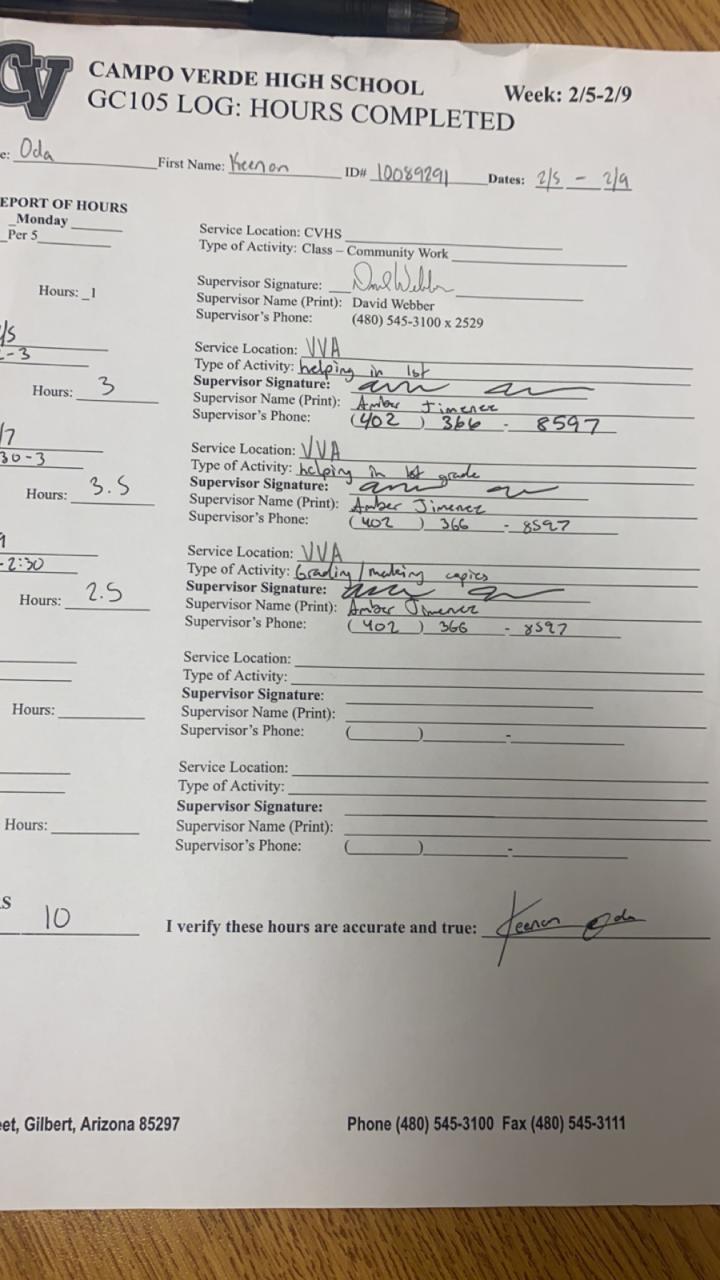 CV
CAMPO VERDE HIGH SCHOOL
Week: 2/5-2/9
GC105 LOG: HOURS COMPLETED
e: Oda First Name: Keenon ID# 10089291 Dates: 2/5 - 2/9
EPORT OF HOURS
_Monday
_Per 5
Service Location: CVHS
Type of Activity: Class – Community Work
Hours: _1
Supervisor Signature: David Webber
Supervisor Name (Print): David Webber
Supervisor's Phone: (480) 545-3100 x 2529
/5
-3
Service Location: VVA
Type of Activity: helping in 1st
Hours: 3
Supervisor Signature:
Supervisor Name (Print): Amber Jimenez
Supervisor's Phone: (402) 366 - 8597
/7
30-3
Service Location: VVA
Type of Activity: helping in 1st grade
Hours: 3.5
Supervisor Signature:
Supervisor Name (Print): Amber Jimenez
Supervisor's Phone: (402) 366 - 8597
9
-2:30
Service Location: VVA
Type of Activity: Grading / making copies
Hours: 2.5
Supervisor Signature:
Supervisor Name (Print): Amber Jimenez
Supervisor's Phone: (402) 366 - 8597
Service Location:
Type of Activity:
Supervisor Signature:
Hours:
Supervisor Name (Print):
Supervisor's Phone: ( ) -
Service Location:
Type of Activity:
Supervisor Signature:
Hours:
Supervisor Name (Print):
Supervisor's Phone: ( ) -
S 10 I verify these hours are accurate and true: Keenon Oda
et, Gilbert, Arizona 85297
Phone (480) 545-3100 Fax (480) 545-3111